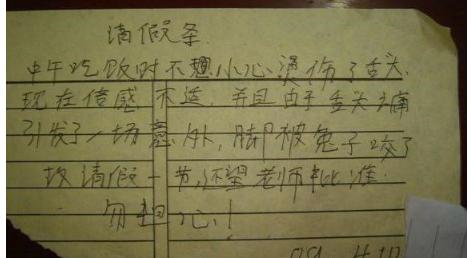 请假条
中午吃饭时不想小心烫伤了舌头.
现在倍感不适 并且由于舌头痛
引发了一场意外,脚被兔子咬了
故请假一节,还望老师批准.
勿担心!